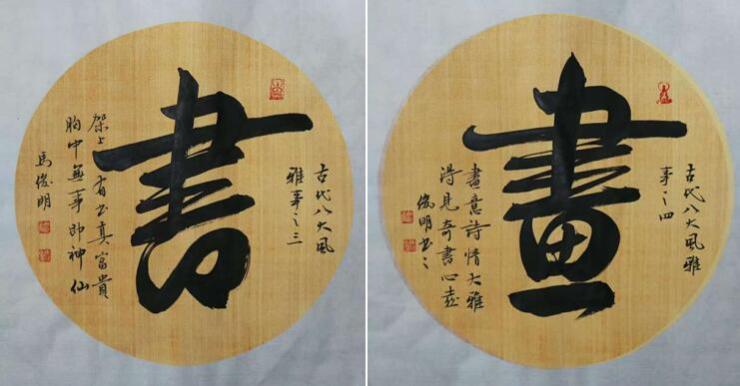 古代八大風
雅事之三
書
架上有书真富貴
胸中無事即神仙
馬俊明
古代八大風雅
事之四
畫
畫意詩情大雅
得見奇書心
俊明书之